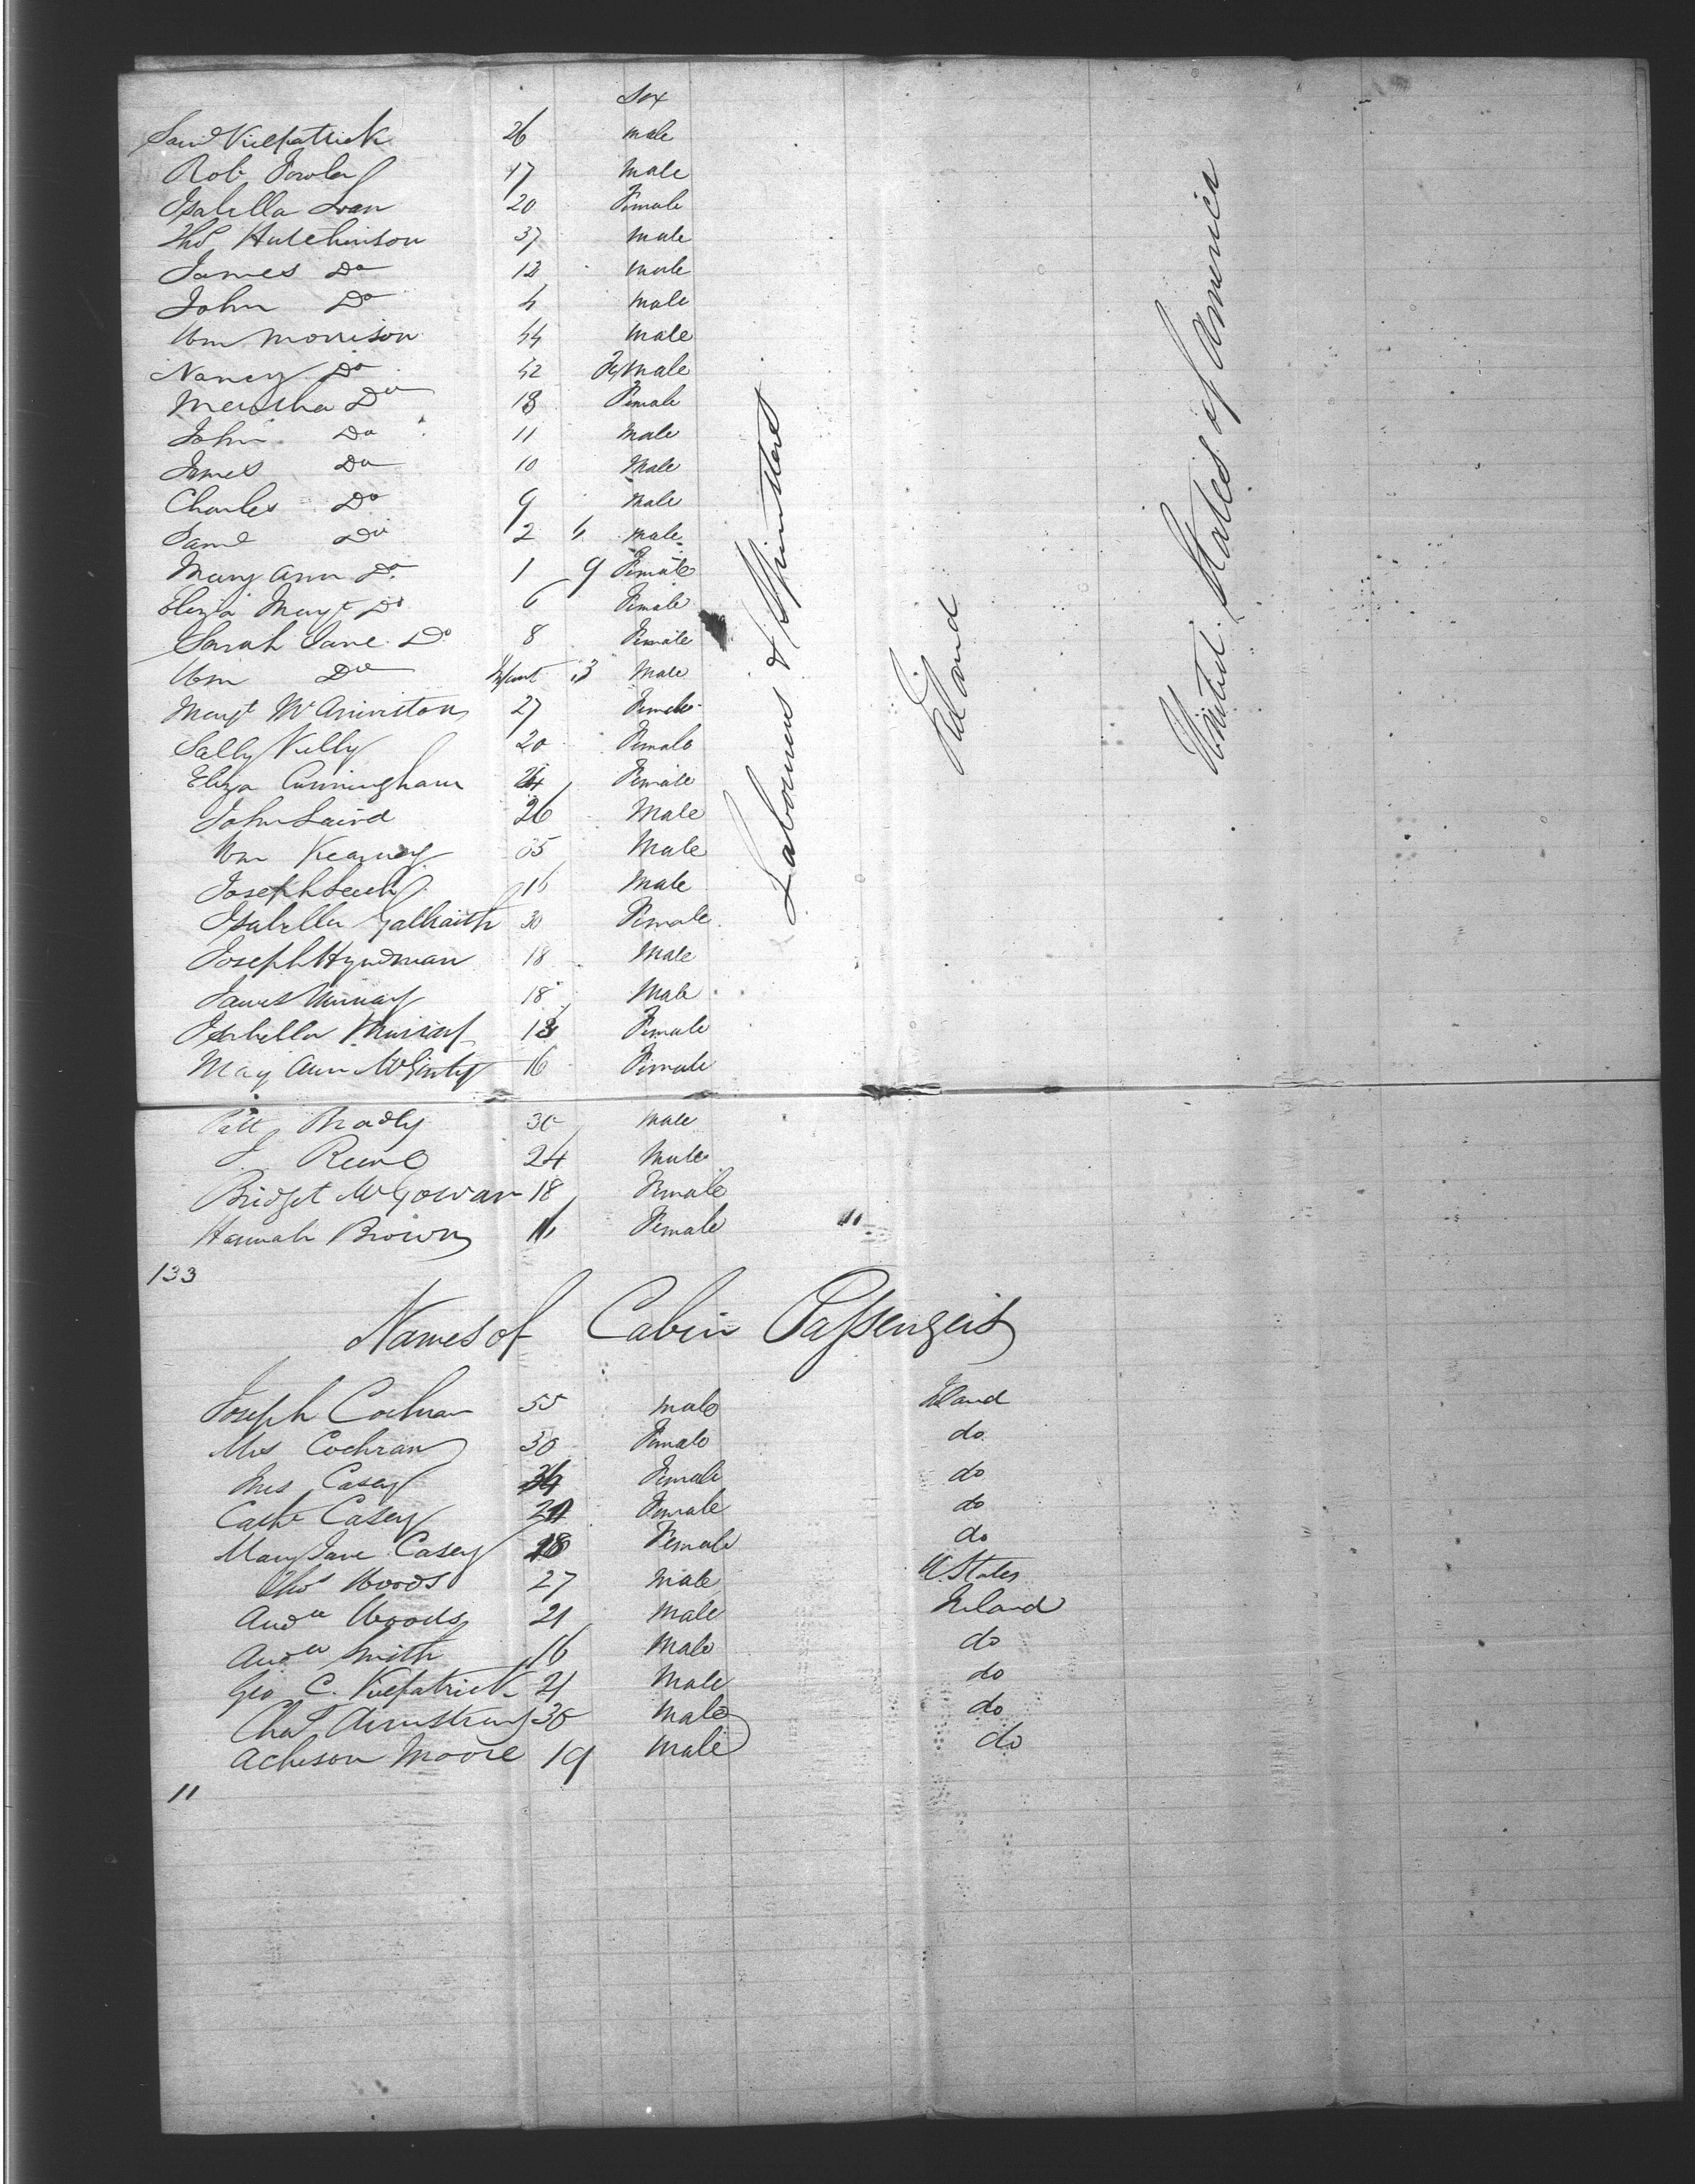 Sex
Saml Kilpatrick 26 male
Rob Fowler 17 male
Isabella 20 Female
Thos Hutchinson 37 male
James Do 12 male
John Do 4 male
Wm Morrison 44 male
Nancy Do 42 Female
Martha Do 13 Female
John Do 11 male
James Do 10 Male
Charles Do 9 male
Saml Do 2 6 male
Mary Ann Do 1 9 Female
Eliza Margt Do 6 Female
Sarah Jane Do 8 Female
Wm Do Infant 3 Male
Margt 27 Female
Sally Kelly 20 Female
Eliza Cunningham 24 Female
John Laird 26 Male
Wm Kearney 35 Male
Joseph 16 Male
Isabella Galbraith 30 Female
Joseph Hyndman 18 Male
James Murray 18 Male
Isabella Murray 13 Female
Mary Ann McGinty 16 Female
Labourers & Spinsters
Ireland
United States of America
Patt Bradly 30 male
J 24 Male
Bridget McGowan 18 Female
Hannah Brown 16 Female "
133
Names of Cabin Passengers
Joseph Cochran 55 male Ireland
Mrs Cochran 30 Female do
Mrs Casey 34 Female do
Cathe Casey 21 Female do
Mary Jane Casey 18 Female do
Thos Woods 27 male U States
Andw Woods 21 Male Ireland
Andw Smith 16 Male do
Geo C. Kilpatrick 21 Male do
Chas Armstrong 30 Male do
Acheson Moore 19 Male do
11